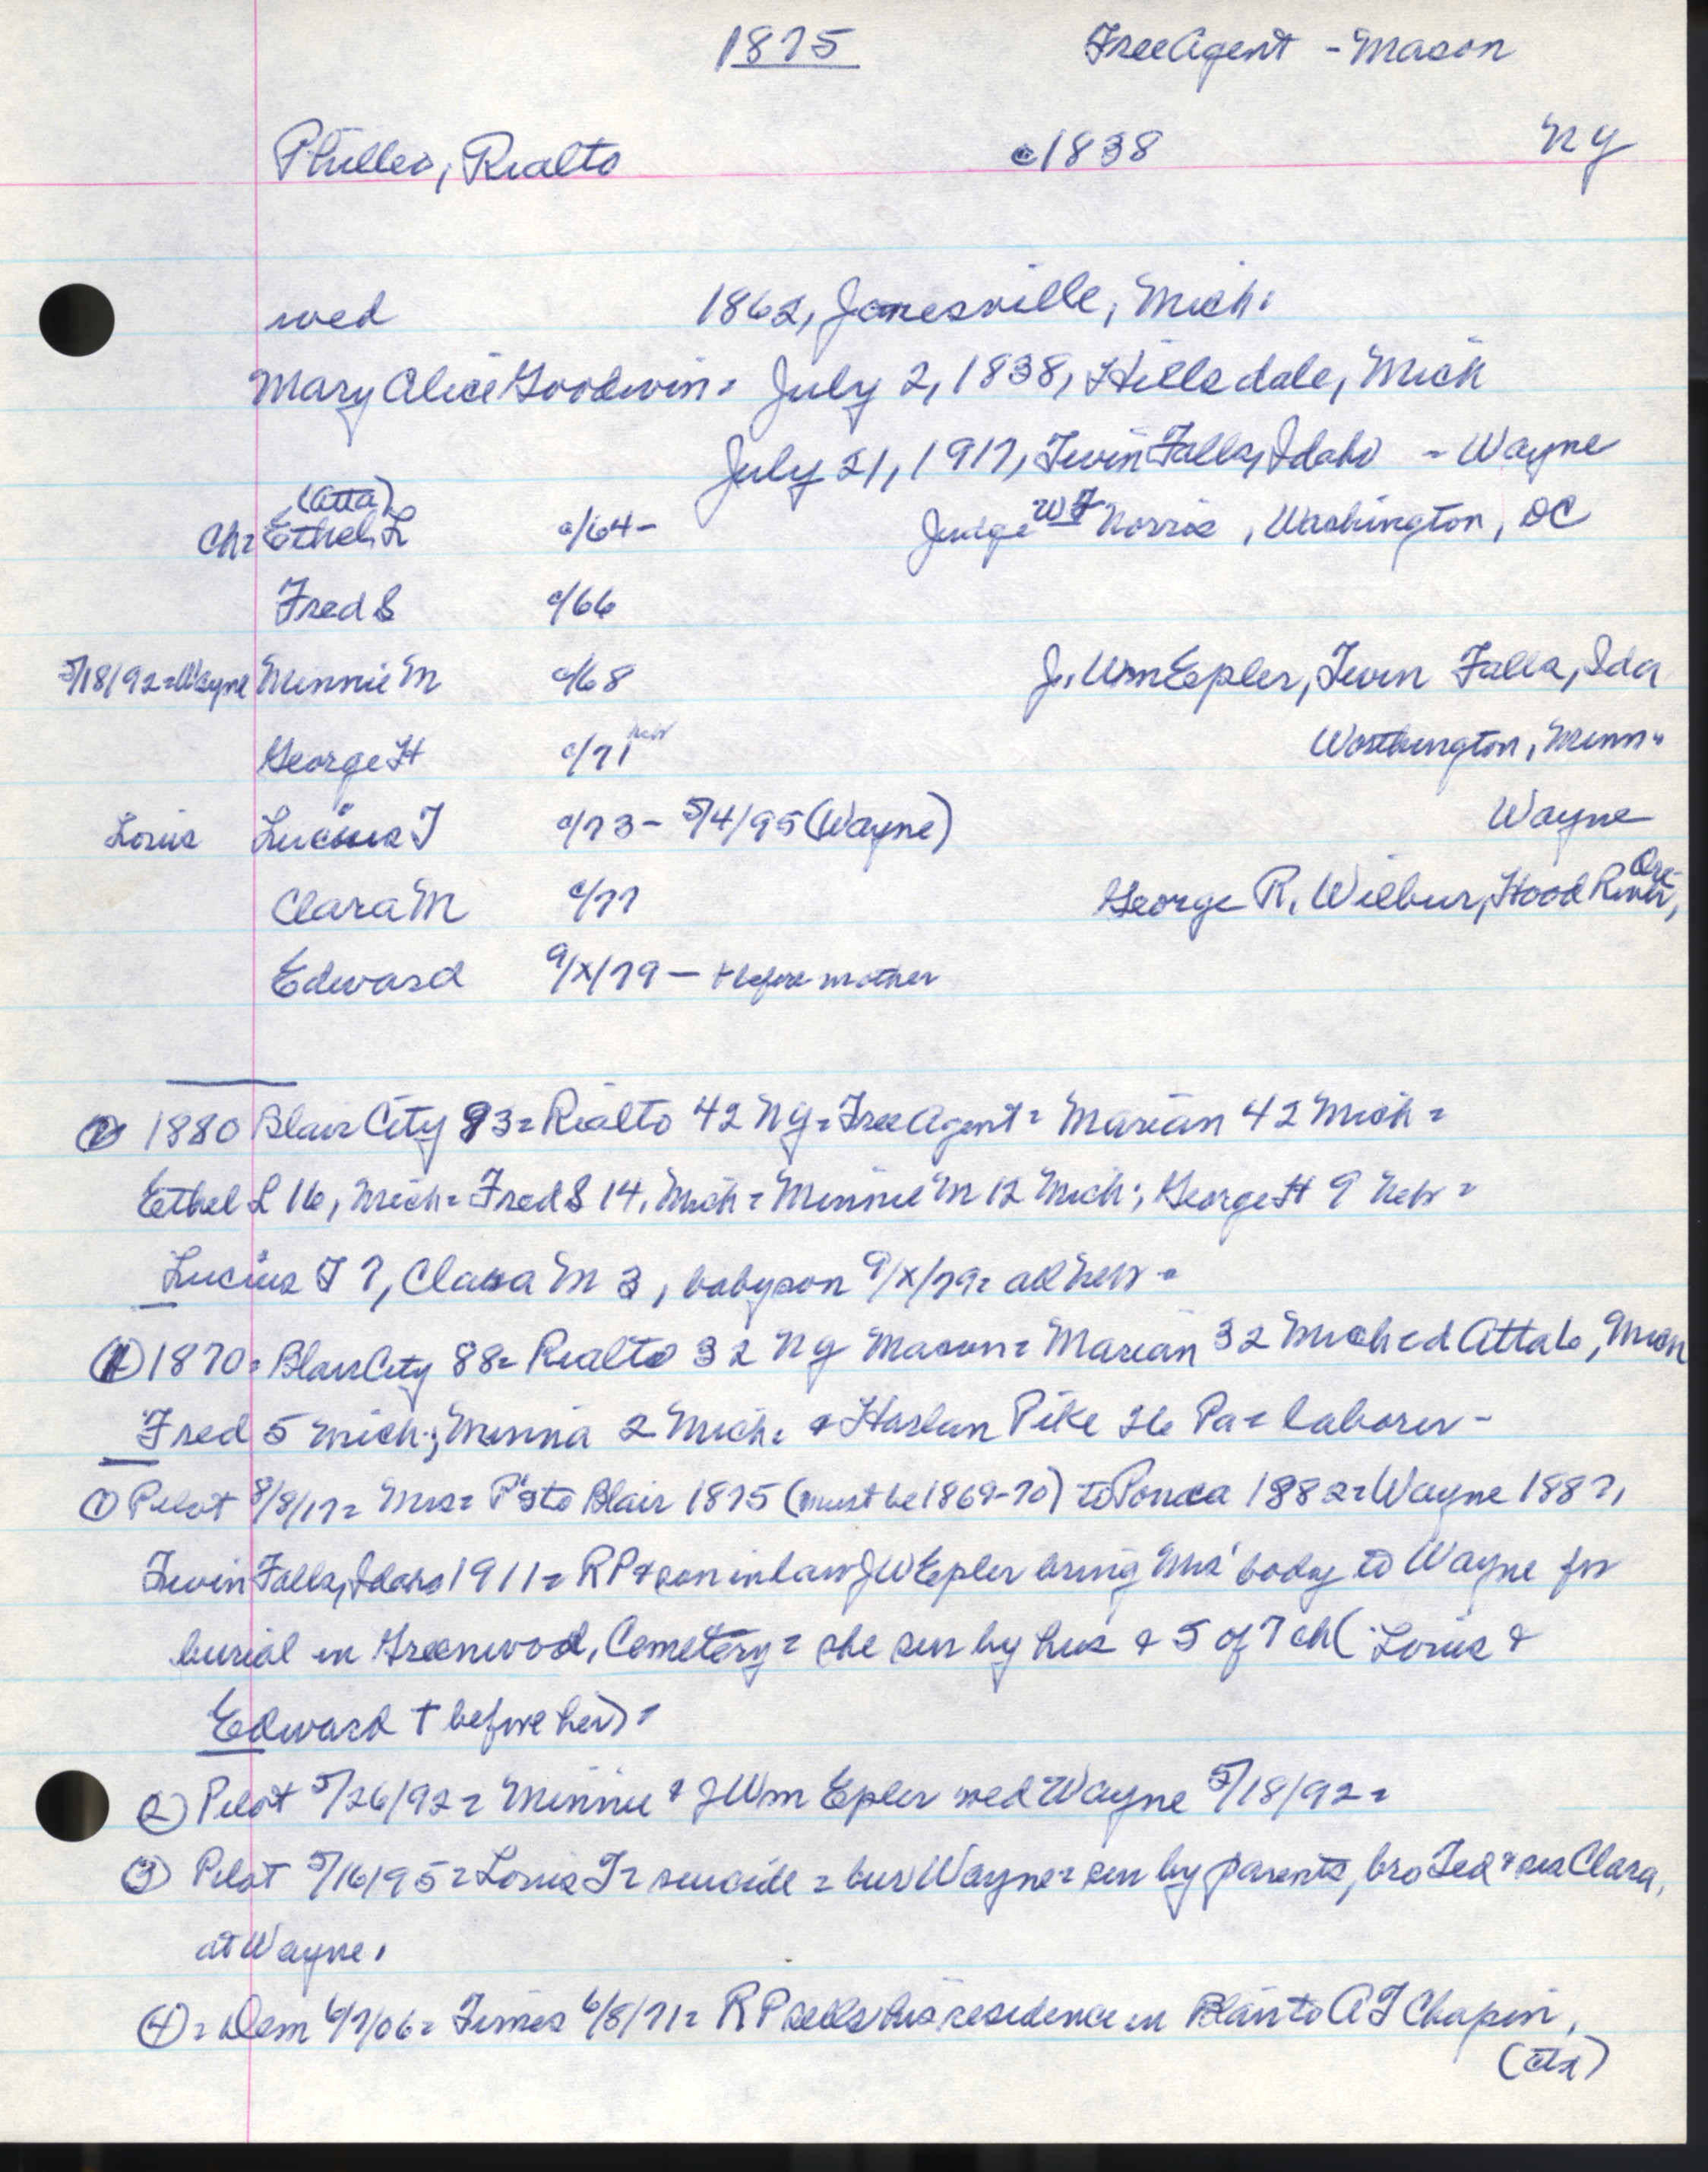 1875 Free Agent - Mason
Philleo, Rialto c1838 NY
wed 1862, Jonesville, Mich.
Mary Alice Goodwin = July 2, 1838, Hillsdale, Mich
July 21, 1917, Twin Falls, Idaho - Wayne
(Atta)
Ch = Ethel L c/64- Judge WF Norris, Washington, DC
Fred S c/66
5/18/92=Wayne Minnie M c/68 J. Wm Epler, Twin Falls, Ida
George H c/71 Neb Worthington, Minn.
Louis Lucius T c/73 - 5/4/95 (Wayne) Wayne
Clara M c/77 George R. Wilbur, Hood River, Ore
Edward 9/X/79 - † before mother
1880 Blair City 93 = Rialto 42 NY = Free Agent = Marian 42 Mich =
Ethel L 16, Mich = Fred S 14, Mich = Minnie M 12 Mich; George H 9 Neb =
Lucius T 7, Clara M 3, baby son 9/X/79 = all Neb -
1870 = Blair City 88 = Rialto 32 NY Mason = Marian 32 Mich = Atta 6, Mich
Fred 5 Mich; Minna 2 Mich. & Harlan Pike 26 Pa = laborer -
① Pilot 8/8/17 = Mrs = P's to Blair 1875 (must be 1869-70) to Ponca 1882 = Wayne 1887,
Twin Falls, Idaho 1911 = RP & son in law JW Epler bring Mrs' body to Wayne for
burial in Greenwood Cemetery = she sur by hus & 5 of 7 ch (Louis &
Edward † before her) =
② Pilot 5/26/92 = Minnie & J Wm Epler wed Wayne 5/18/92 =
③ Pilot 5/16/95 = Louis T = suicide = bur Wayne = sur by parents, bro Ted & sis Clara,
at Wayne.
④ = Dem 6/7/06 = Times 6/8/71 = RP sells his residence in Blair to AT Chapin,